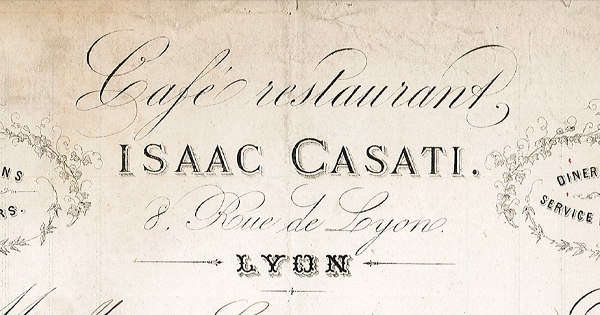 Café restaurant.
ISAAC CASATI.
8. Rue de Lyon.
LYON
NS
RS.
DINER
SERVICE